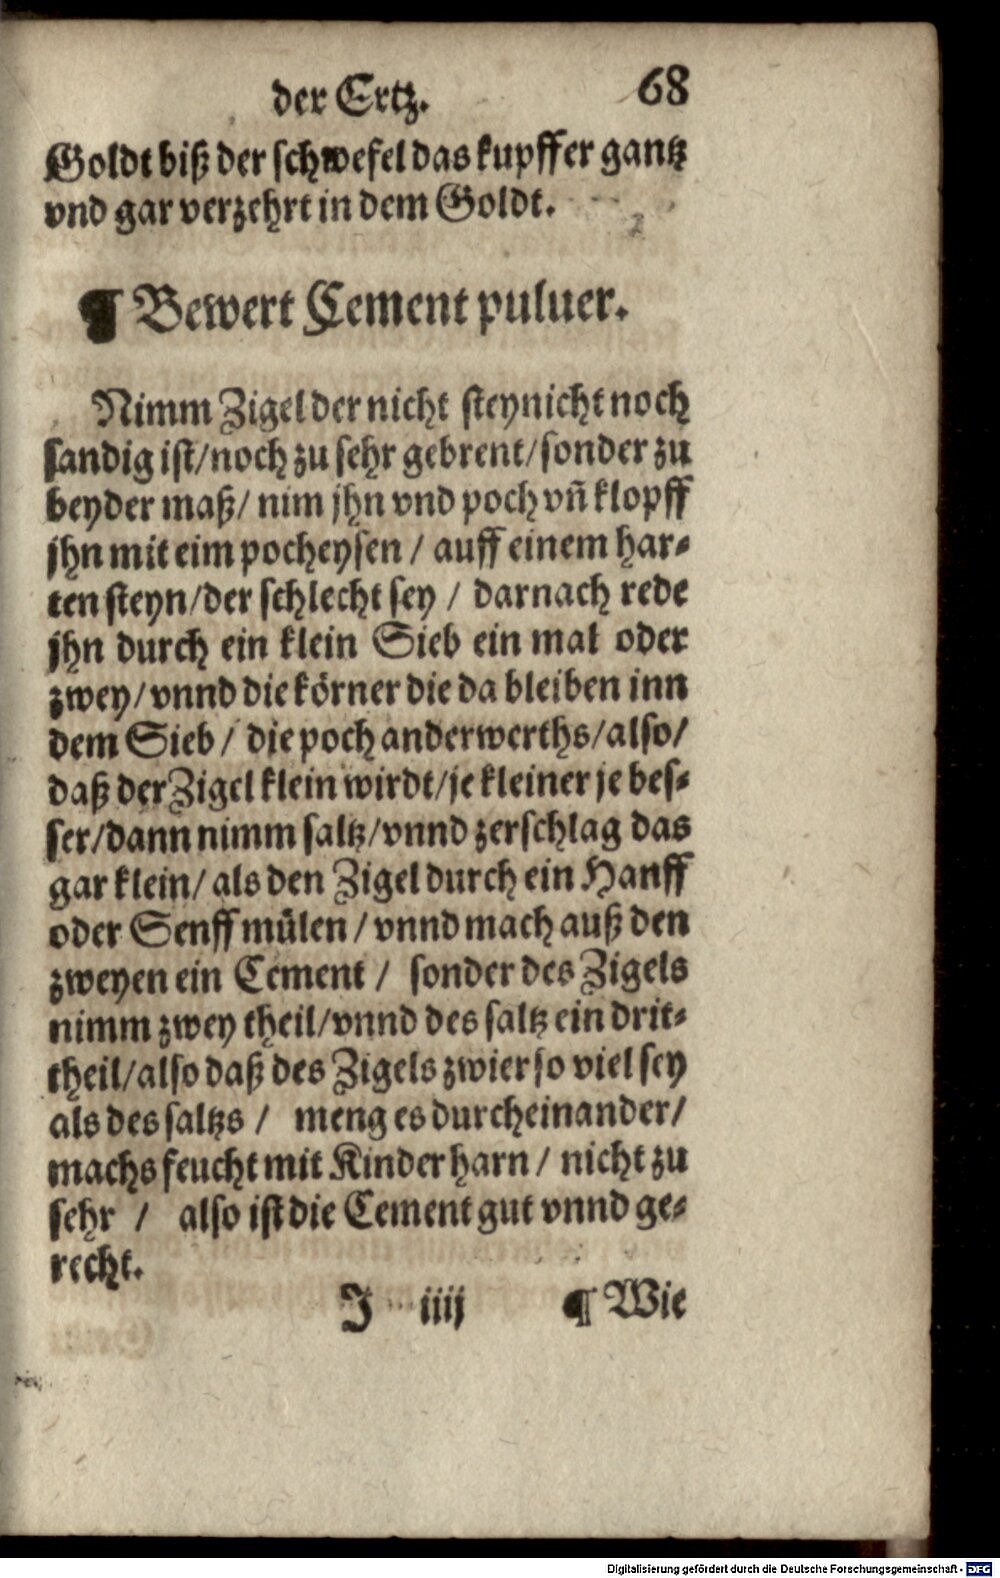 der Ertz. 68
Goldt biß der schwefel das kupffer gantz
vnd gar verzehrt in dem Goldt.
¶ Bewert Cement puluer.
Nimm Zigel der nicht steynicht noch
sandig ist/noch zu sehr gebrent/sonder zu
beyder maß/ nim jhn vnd poch vñ klopff
jhn mit eim pocheysen / auff einem har⸗
ten steyn/der schlecht sey / darnach rede
jhn durch ein klein Sieb ein mal oder
zwey/vnnd die körner die da bleiben inn
dem Sieb / die poch anderwerths/also/
daß der Zigel klein wirdt/je kleiner je bes⸗
ser/dann nimm saltz/vnnd zerschlag das
gar klein/ als den Zigel durch ein Hanff
oder Senff mülen / vnnd mach auß den
zweyen ein Cement / sonder des Zigels
nimm zwey theil/vnnd des saltz ein drit⸗
theil/also daß des Zigels zwier so viel sey
als des saltzs / meng es durcheinander/
machs feucht mit Kinder harn / nicht zu
sehr / also ist die Cement gut vnnd ge⸗
recht.
J iiij ¶ Wie
Digitalisierung gefördert durch die Deutsche Forschungsgemeinschaft - DFG